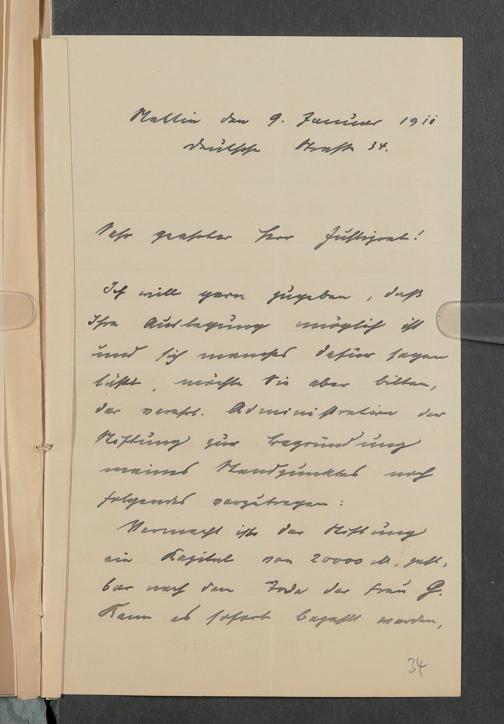 Stettin den 9. Januar 1911
Deutsche Straße 34.
Sehr geehrter Herr Justizrat!
Ich will gern zugeben, daß
Ihre Auslegung möglich ist
und sich manches dafür sagen
läßt, möchte Sie aber bitten,
der verehrl. Administration der
Stiftung zur Begründung
meines Standpunktes noch
folgendes vorzutragen:
Vermacht ist der Stiftung
ein Kapital von 20000 M, zahl-
bar nach dem Tode der Frau G.
Kann es sofort bezahlt werden,
34